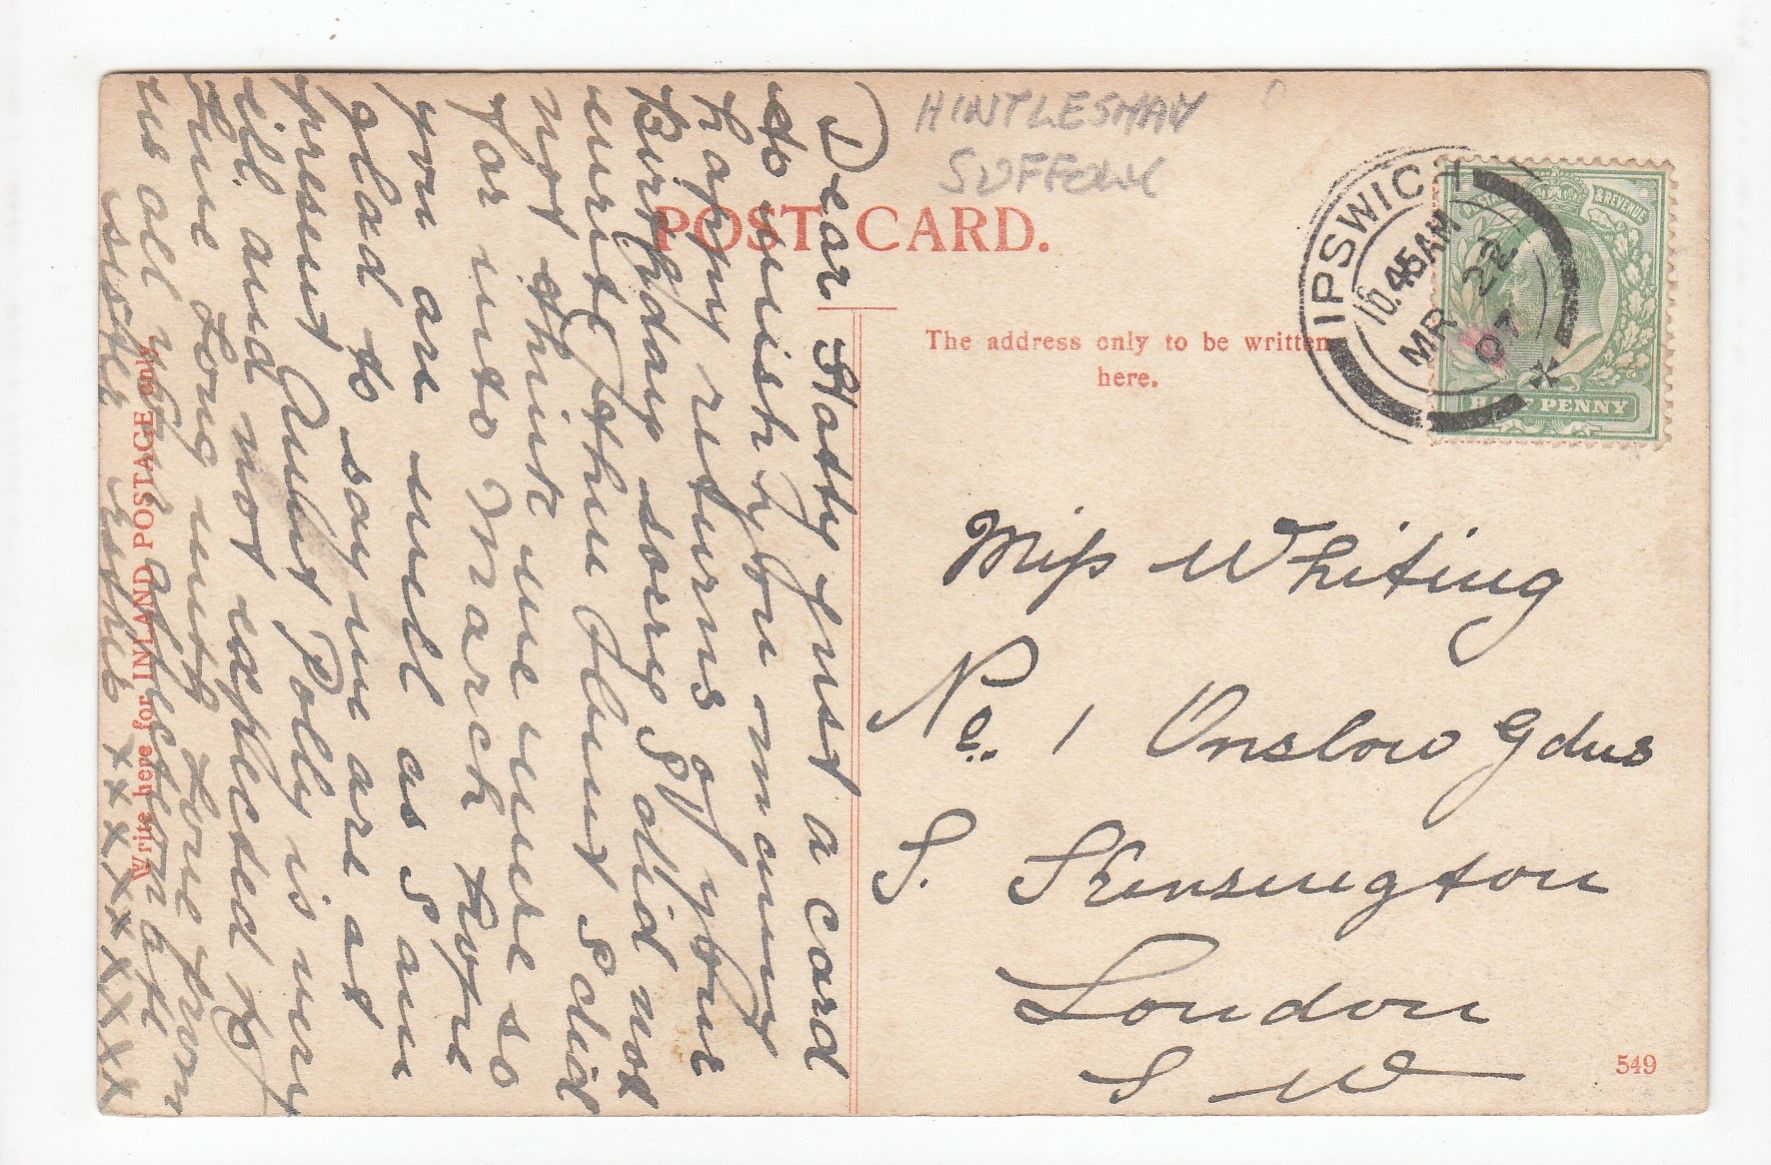 HINTLESHAM
SUFFOLK
POST CARD.
The address only to be written
here.
Write here for INLAND POSTAGE only
IPSWICH
10.45AM
MR 22
07
POSTAGE & REVENUE
HALF PENNY
Dear Hatty Just a card
to wish you many
happy returns of your
Birthday sorry I did not
write time I did
not think we were so
far into March hope
you are well as I am
glad to say we are at
present Aunt Polly is very
ill and not expected to
live long with love from
us all
sister xxxxxxxxx
Miss Whiting
No. 1 Onslow Gdns
S. Kensington
London
S W
549